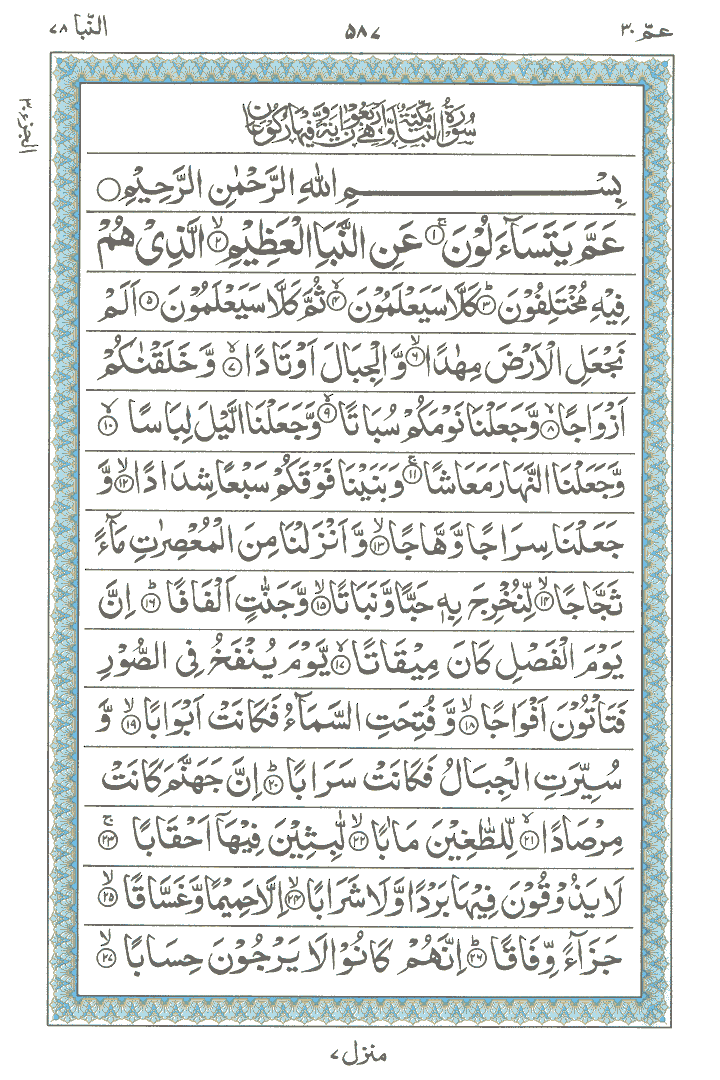 عمّ ٣٠
٥٨٧
النّبا ٧٨
الجزء ٣٠
سُوْرَةُ النَّبَاِ مَكِّيَّةٌ وَّهِيَ اَرْبَعُوْنَ اٰيَةً وَّفِيْهَا رُكُوْعَانِ
بِسْمِ اللّٰهِ الرَّحْمٰنِ الرَّحِيْمِ
عَمَّ يَتَسَآءَلُوْنَ ۚ﴿١﴾ عَنِ النَّبَاِ الْعَظِيْمِ ۙ﴿٢﴾ الَّذِيْ هُمْ
فِيْهِ مُخْتَلِفُوْنَ ؕ﴿٣﴾ كَلَّا سَيَعْلَمُوْنَ ۙ﴿٤﴾ ثُمَّ كَلَّا سَيَعْلَمُوْنَ ﴿٥﴾ اَلَمْ
نَجْعَلِ الْاَرْضَ مِهٰدًا ۙ﴿٦﴾ وَّالْجِبَالَ اَوْتَادًا ﴿٧﴾ وَّخَلَقْنٰكُمْ
اَزْوَاجًا ﴿٨﴾ وَّجَعَلْنَا نَوْمَكُمْ سُبَاتًا ﴿٩﴾ وَّجَعَلْنَا الَّيْلَ لِبَاسًا ﴿١٠﴾
وَّجَعَلْنَا النَّهَارَ مَعَاشًا ﴿١١﴾ وَبَنَيْنَا فَوْقَكُمْ سَبْعًا شِدَادًا ۙ﴿١٢﴾ وَّ
جَعَلْنَا سِرَاجًا وَّهَّاجًا ۙ﴿١٣﴾ وَّاَنْزَلْنَا مِنَ الْمُعْصِرٰتِ مَآءً
ثَجَّاجًا ۙ﴿١٤﴾ لِّنُخْرِجَ بِهٖ حَبًّا وَّنَبَاتًا ۙ﴿١٥﴾ وَّجَنّٰتٍ اَلْفَافًا ؕ﴿١٦﴾ اِنَّ
يَوْمَ الْفَصْلِ كَانَ مِيْقَاتًا ۙ﴿١٧﴾ يَّوْمَ يُنْفَخُ فِي الصُّوْرِ
فَتَاْتُوْنَ اَفْوَاجًا ۙ﴿١٨﴾ وَّفُتِحَتِ السَّمَآءُ فَكَانَتْ اَبْوَابًا ۙ﴿١٩﴾ وَّ
سُيِّرَتِ الْجِبَالُ فَكَانَتْ سَرَابًا ؕ﴿٢٠﴾ اِنَّ جَهَنَّمَ كَانَتْ
مِرْصَادًا ۙ﴿٢١﴾ لِّلطّٰغِيْنَ مَاٰبًا ۙ﴿٢٢﴾ لّٰبِثِيْنَ فِيْهَآ اَحْقَابًا ۚ﴿٢٣﴾
لَا يَذُوْقُوْنَ فِيْهَا بَرْدًا وَّلَا شَرَابًا ۙ﴿٢٤﴾ اِلَّا حَمِيْمًا وَّغَسَّاقًا ۙ﴿٢٥﴾
جَزَآءً وِّفَاقًا ؕ﴿٢٦﴾ اِنَّهُمْ كَانُوْا لَا يَرْجُوْنَ حِسَابًا ۙ﴿٢٧﴾
منزل ٧